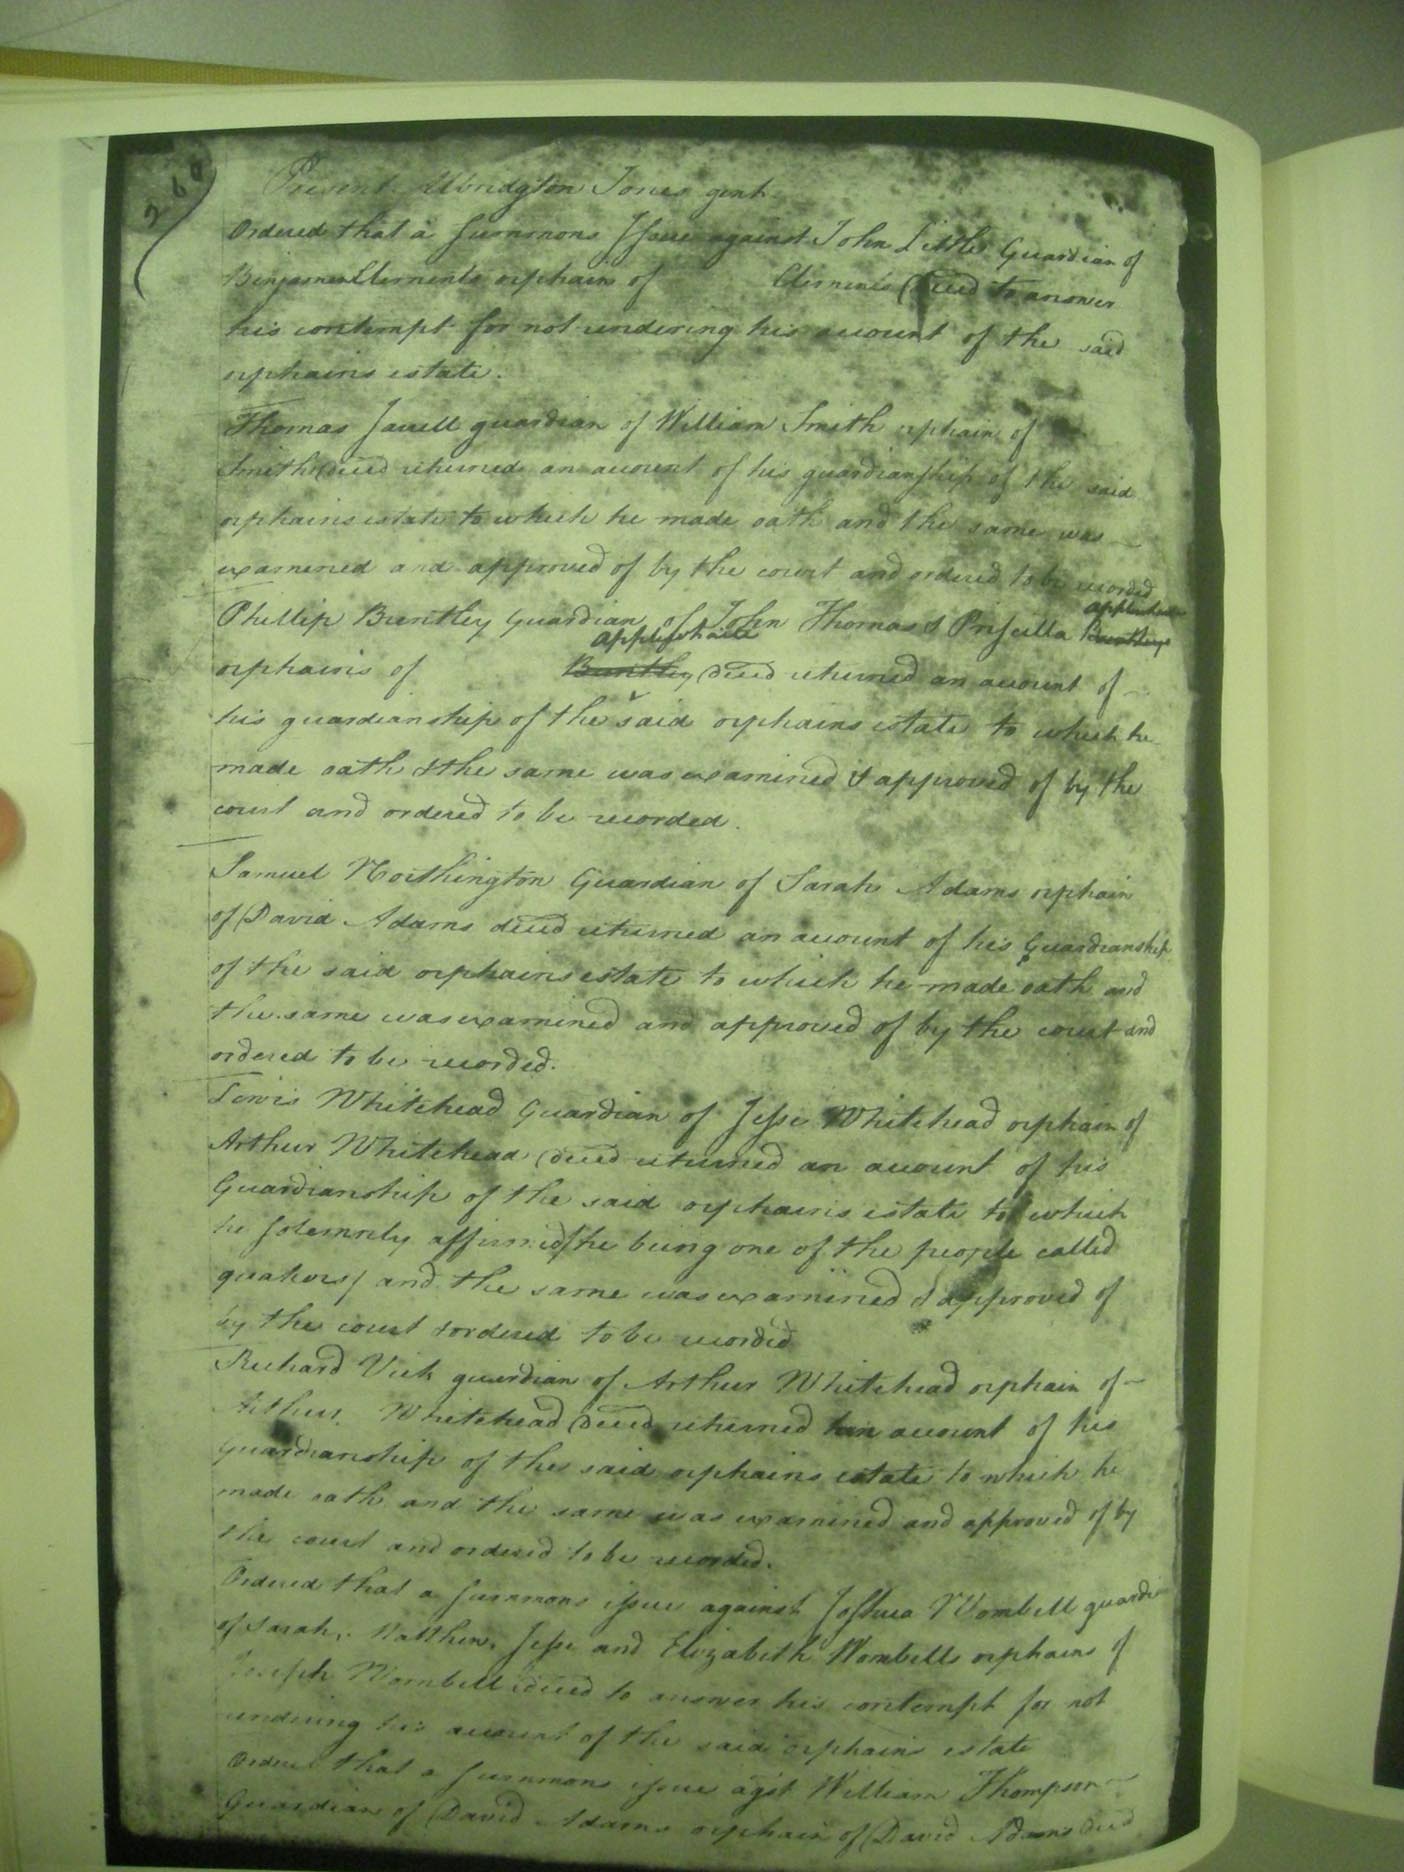 260
Present Albridgton Jones gent.
Ordered that a Summons Issue against John Little Guardian of
Benjamin Clements orphain of Clements Deced to answer
his contempt for not rendering his account of the said
orphains estate.
Thomas Jarrell guardian of William Smith orphain of
Smith Deced returned an account of his guardianship of the said
orphains estate to which he made oath and the same was
examined and approved of by the court and ordered to be recorded
Applewhaite
Phillip Bruntley Guardian of John Thomas & Priscilla Bruntleys
Applewhaite
orphains of Bruntley Deced returned an account of
his guardianship of the said orphains estate to which he
made oath & the same was examined & approved of by the
court and ordered to be recorded.
Samuel Northington Guardian of Sarah Adams orphain
of David Adams deced returned an account of his Guardianship
of the said orphains estate to which he made oath and
the same was examined and approved of by the court and
ordered to be recorded.
Lewis Whitehead Guardian of Jesse Whitehead orphain of
Arthur Whitehead Deced returned an account of his
Guardianship of the said orphains estate to which
he Solemnly affirmed /he being one of the people called
quakers/ and the same was examined & approved of
by the court & ordered to be recorded
Richard Vick guardian of Arthur Whitehead orphain of
Arthur Whitehead Deced returned an account of his
Guardianship of the said orphains estate to which he
made oath and the same was examined and approved of by
the court and ordered to be recorded.
Ordered that a Summons issue against Joshua Wombell guardi
of Sarah, Matthew, Jesse and Elizabeth Wombells orphains of
Joseph Wombell Deced to answer his contempt for not
rendering his account of the said orphains estate
Ordered that a Summons issue agst William Thompson
Guardian of David Adams orphain of David Adams Deced